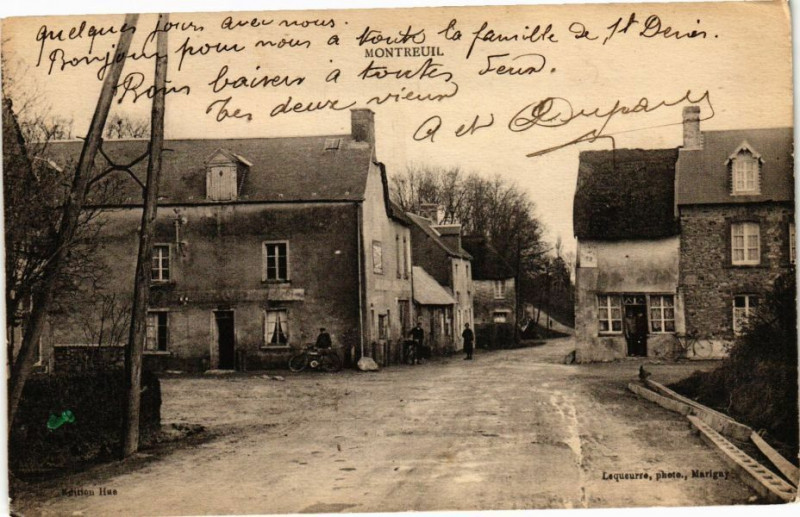 quelques jours avec nous.
Bonjour pour nous à toute la famille de St Denis.
MONTREUIL
Bons baisers à toutes deux.
Les deux vieux
A et Dupard
Edition Hue
Lequeurre, photo., Marigny